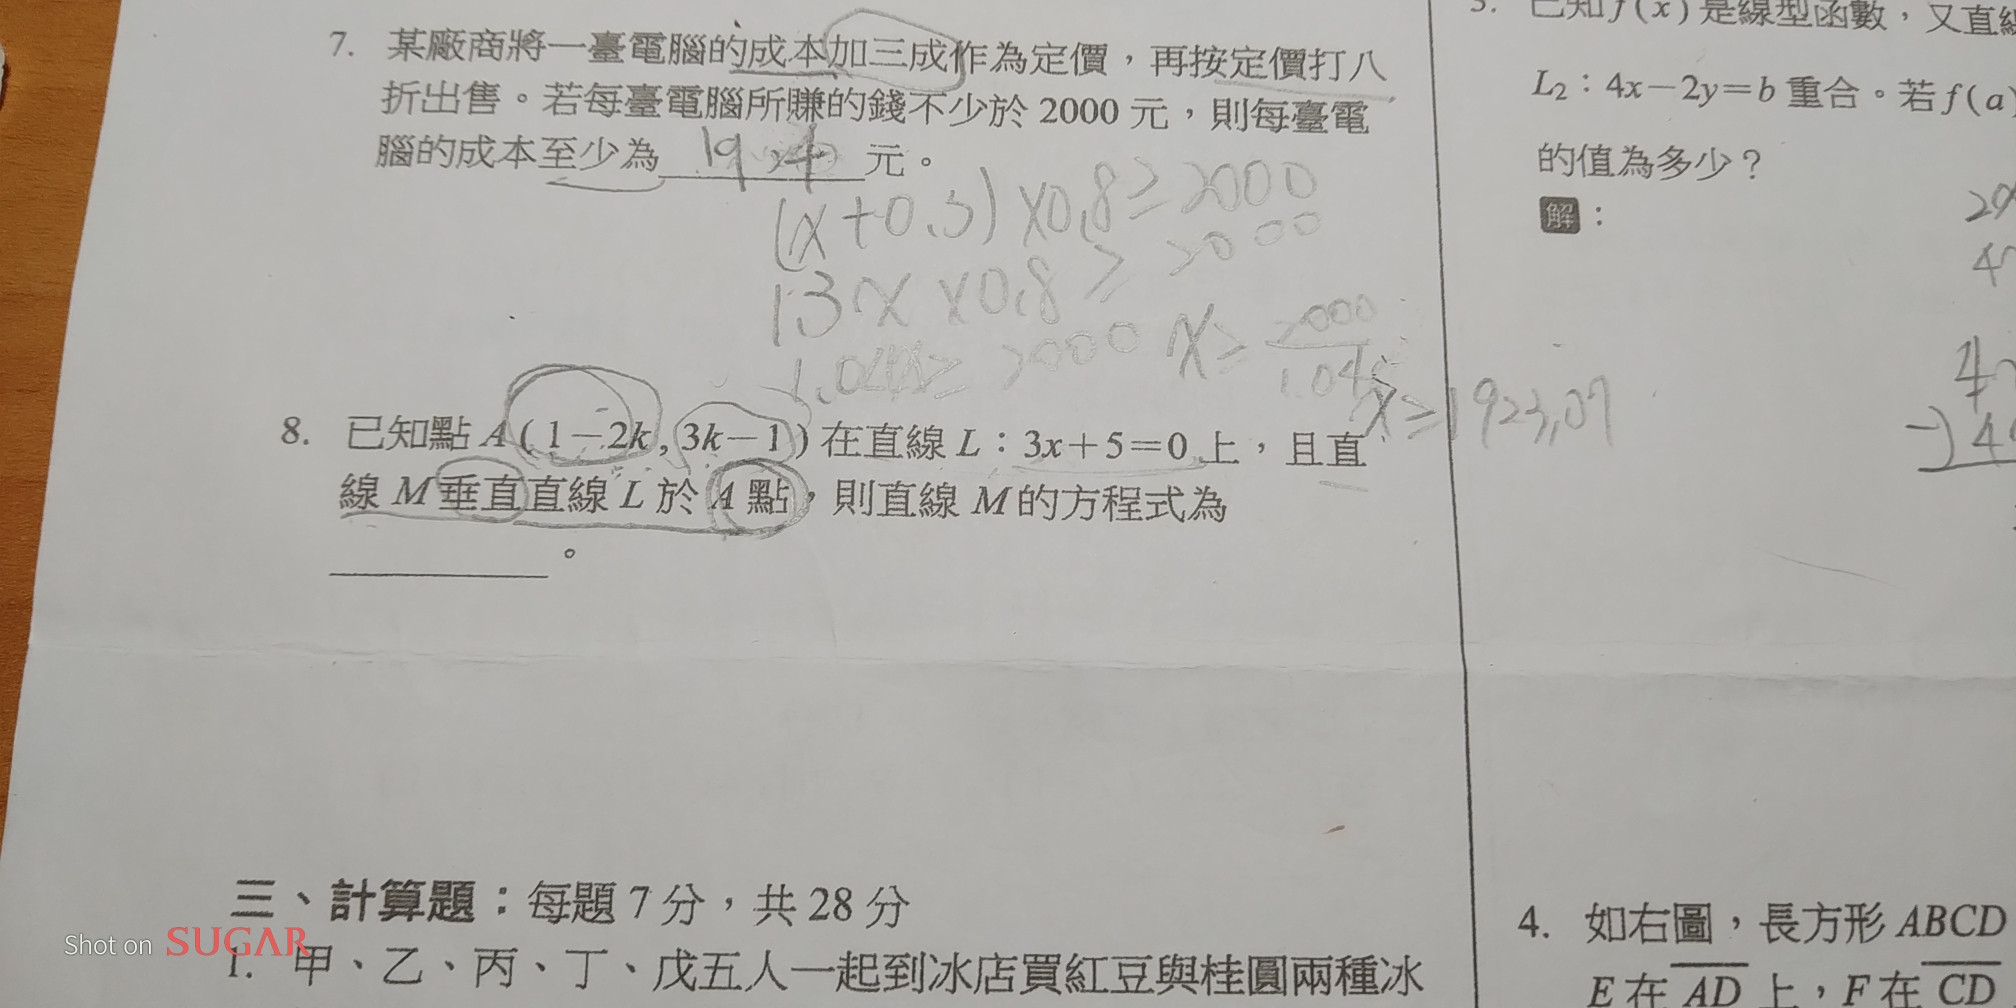 7. 某廠商將一臺電腦的成本加三成作為定價，再按定價打八
折出售。若每臺電腦所賺的錢不少於 2000 元，則每臺電
腦的成本至少為 19 元。
(x+0.3)×0.8≥2000
1.3x×0.8≥2000
1.04x≥2000 x≥2000/1.04
x≥1923.07
8. 已知點 A(1−2k, 3k−1) 在直線 L：3x+5=0 上，且直
線 M 垂直直線 L 於 A 點，則直線 M 的方程式為
。
三、計算題：每題 7 分，共 28 分
1. 甲、乙、丙、丁、戊五人一起到冰店買紅豆與桂圓兩種冰
已知 f(x) 是線型函數，又直線
L₂：4x−2y=b 重合。若 f(a)
的值為多少？
解：
4. 如右圖，長方形 ABCD
E 在 AD 上，F 在 CD
Shot on SUGAR